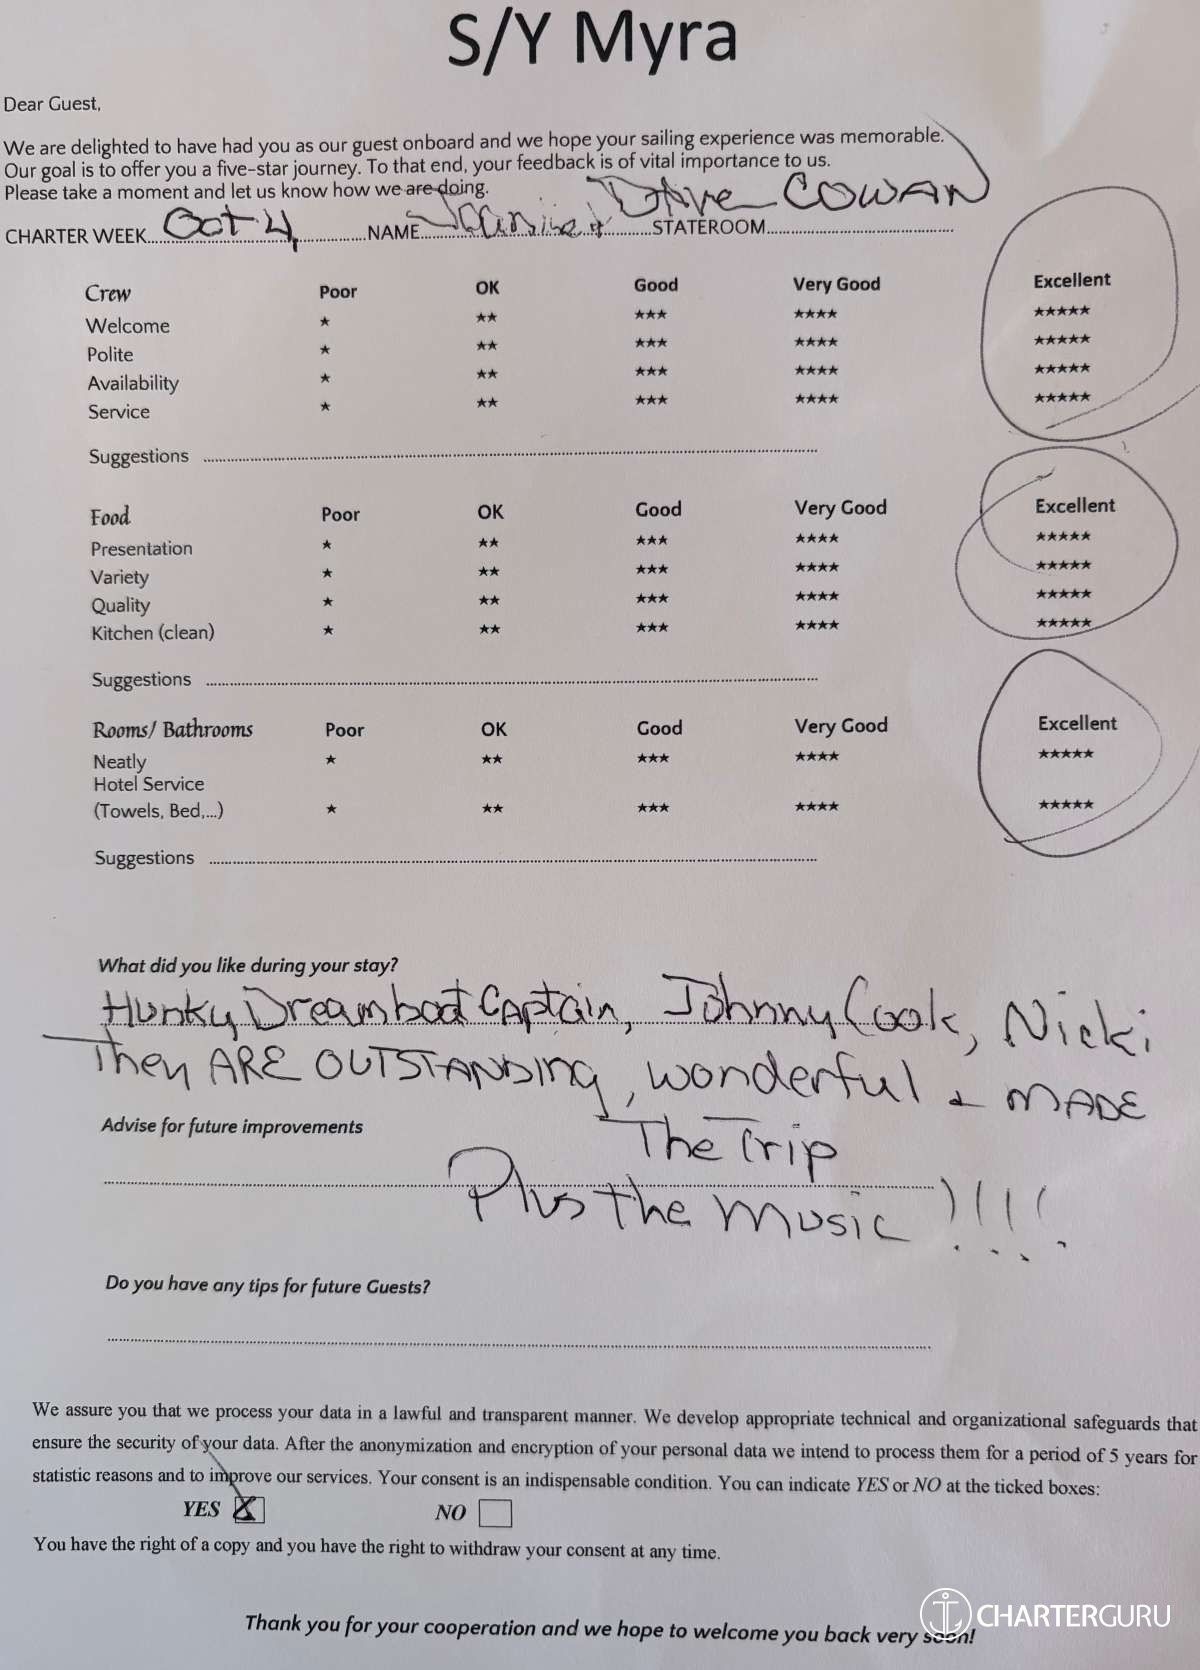 S/Y Myra
Dear Guest,
We are delighted to have had you as our guest onboard and we hope your sailing experience was memorable.
Our goal is to offer you a five-star journey. To that end, your feedback is of vital importance to us.
Please take a moment and let us know how we are doing.
CHARTER WEEK Oct 4 NAME & Dave COWAN STATEROOM
Crew Poor OK Good Very Good Excellent
Welcome ★ ★★ ★★★ ★★★★ ★★★★★
Polite ★ ★★ ★★★ ★★★★ ★★★★★
Availability ★ ★★ ★★★ ★★★★ ★★★★★
Service ★ ★★ ★★★ ★★★★ ★★★★★
Suggestions
Food Poor OK Good Very Good Excellent
Presentation ★ ★★ ★★★ ★★★★ ★★★★★
Variety ★ ★★ ★★★ ★★★★ ★★★★★
Quality ★ ★★ ★★★ ★★★★ ★★★★★
Kitchen (clean) ★ ★★ ★★★ ★★★★ ★★★★★
Suggestions
Rooms/ Bathrooms Poor OK Good Very Good Excellent
Neatly ★ ★★ ★★★ ★★★★ ★★★★★
Hotel Service
(Towels, Bed,...) ★ ★★ ★★★ ★★★★ ★★★★★
Suggestions
What did you like during your stay?
Hunky Dreamboat Captain, Johnny Cook, Nicki
They ARE OUTSTANDING, wonderful & MADE
Advise for future improvements
The Trip
Plus the music !!!!
Do you have any tips for future Guests?
We assure you that we process your data in a lawful and transparent manner. We develop appropriate technical and organizational safeguards that
ensure the security of your data. After the anonymization and encryption of your personal data we intend to process them for a period of 5 years for
statistic reasons and to improve our services. Your consent is an indispensable condition. You can indicate YES or NO at the ticked boxes:
YES X NO
You have the right of a copy and you have the right to withdraw your consent at any time.
Thank you for your cooperation and we hope to welcome you back very soon!
CHARTERGURU